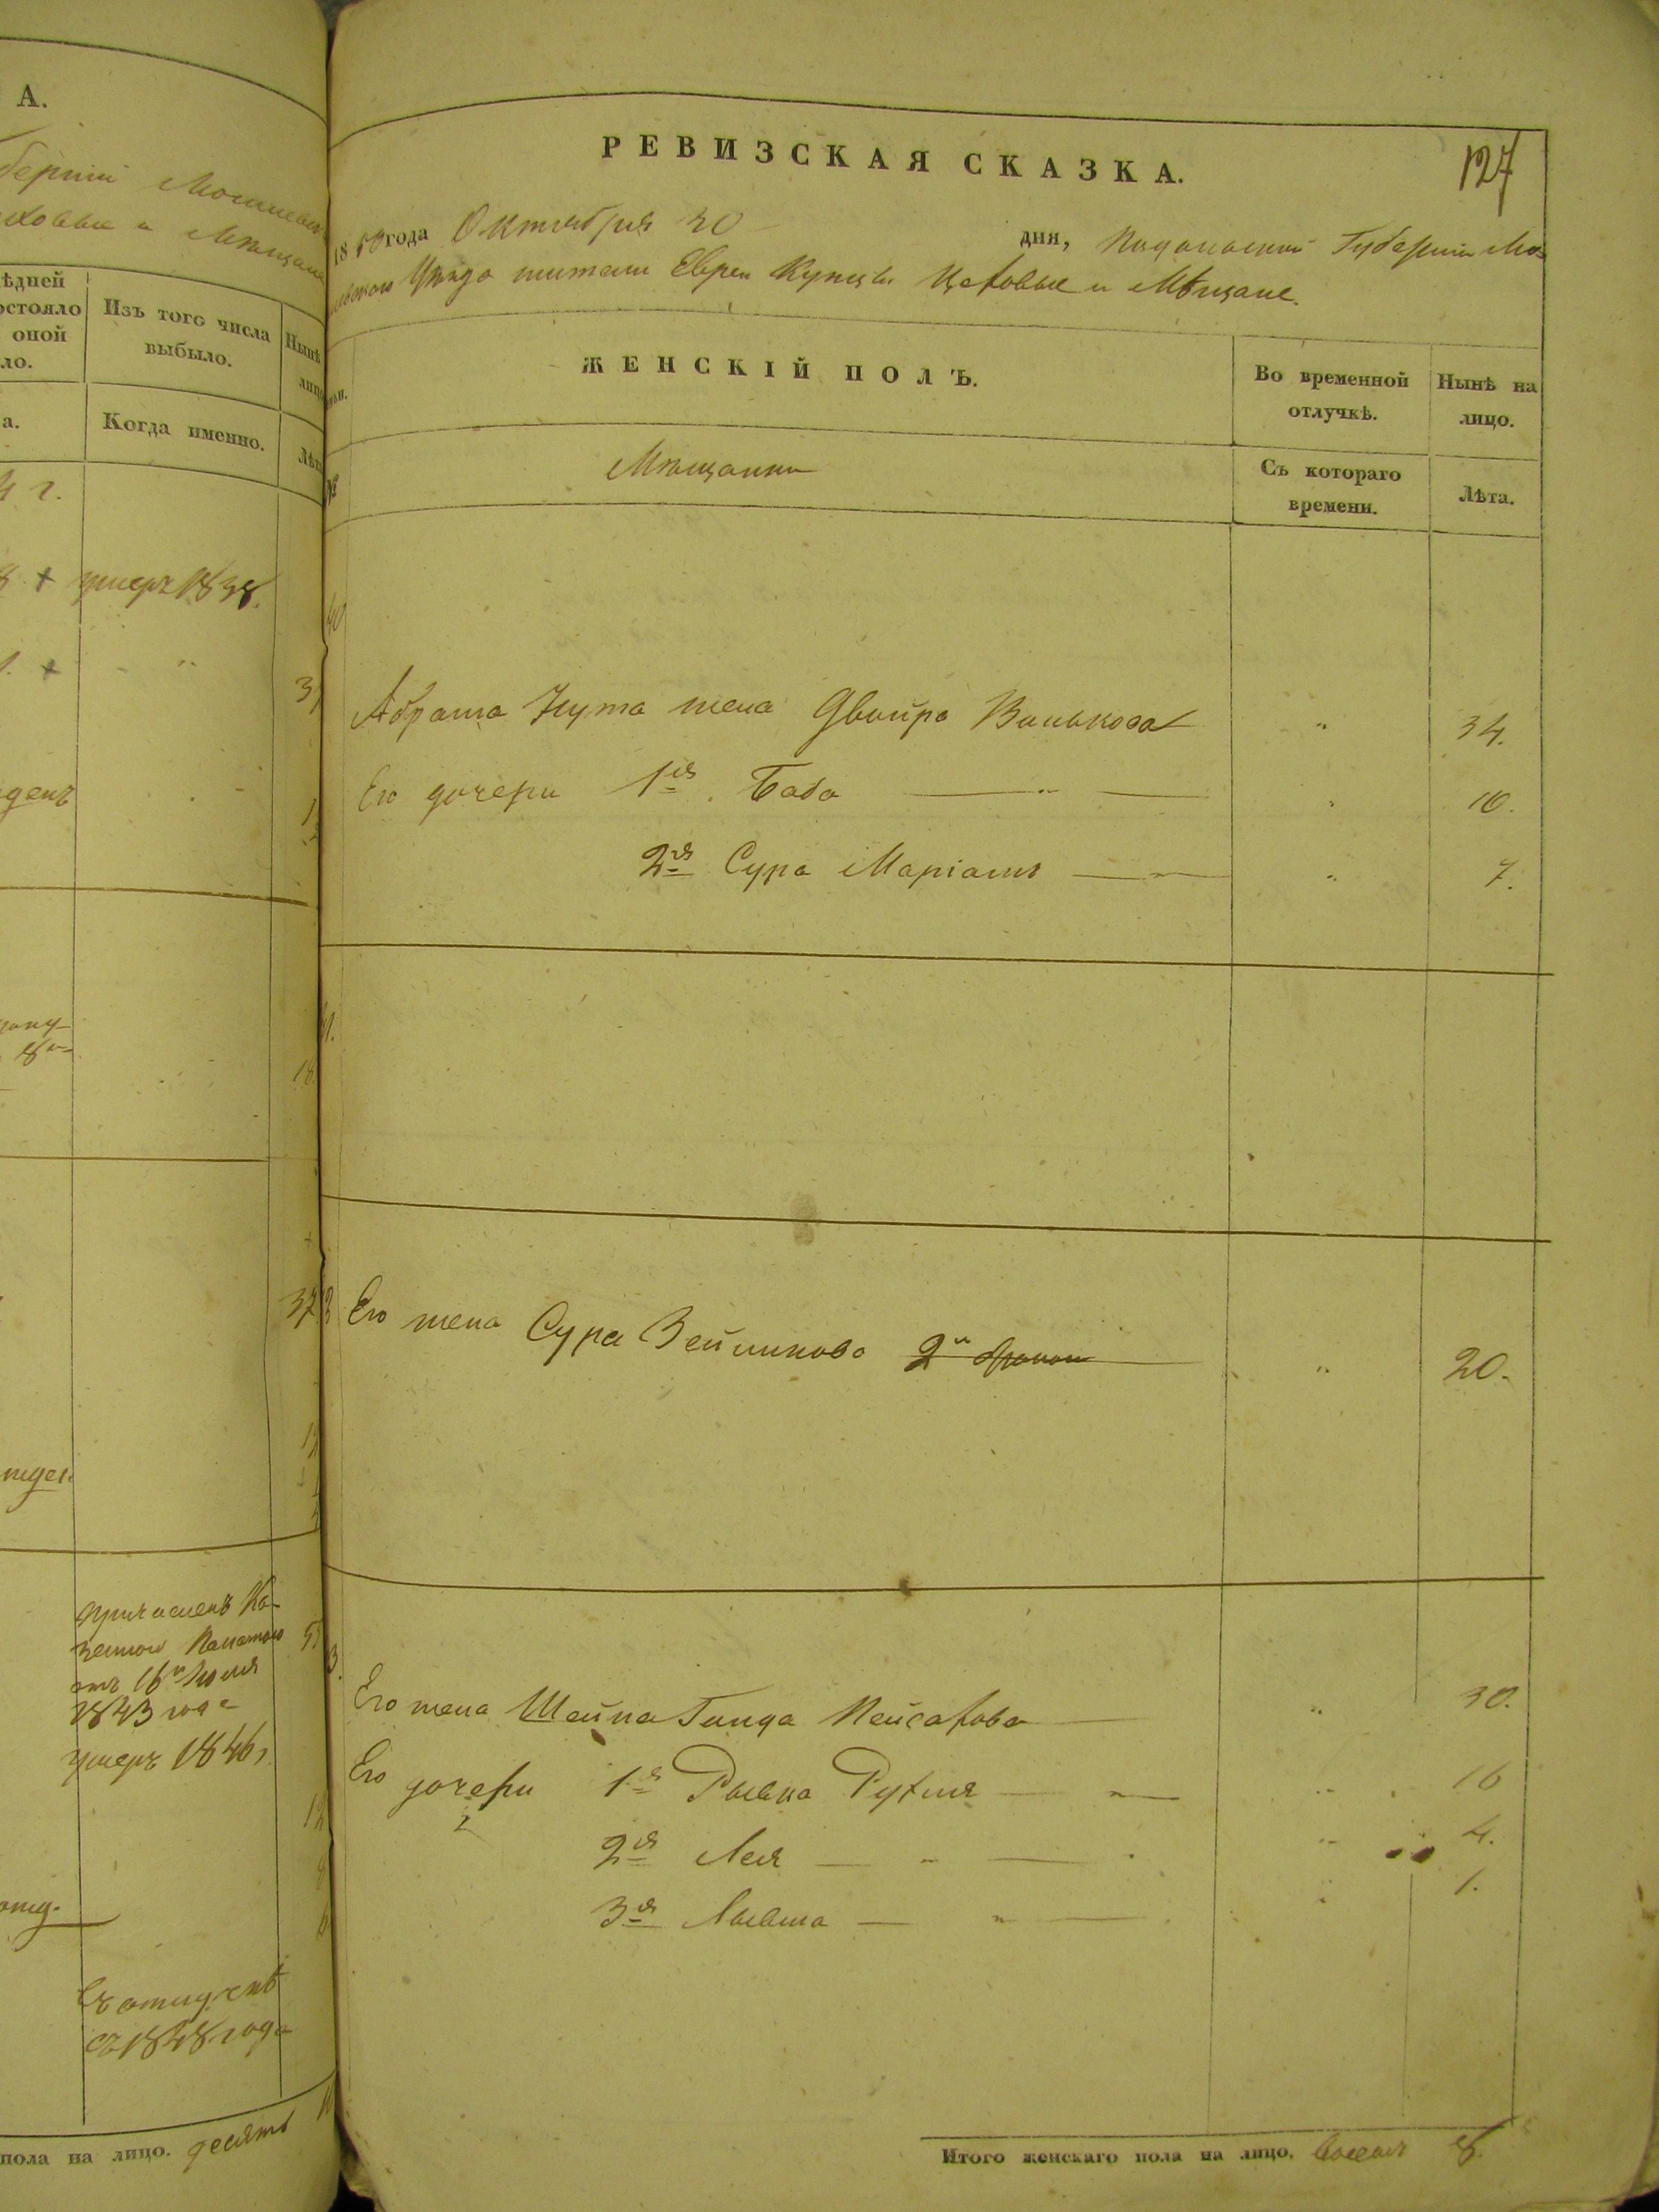 А.
берніи Могилевск
ховые и Мѣщане
ѣдней
остояло
оной
ло.
Изъ того числа
выбыло.
Нынѣ
лицо
а.
Когда именно.
Лѣта
г.
умеръ 1838.
31
18.
37
причисленъ Ка-
зенною Палатою
отъ 16 Іюля
1843 года
умеръ 1846 г.
Въ отлучкѣ
съ 1848 года
пола на лицо. десять
РЕВИЗСКАЯ СКАЗКА.
127
1850 года Октября 20 дня, Подольской Губерніи Мо-
Уѣзда Евреи Купцы Цеховые и Мѣщане.
ЖЕНСКІЙ ПОЛЪ.
Во временной
отлучкѣ.
Нынѣ на
лицо.
№
Мѣщанки
Съ котораго
времени.
Лѣта.
40
Абрама Нута жена Двойра Волькова " 34.
Его дочери 1я Баба " 10.
2я Сура Маріамъ " 7.
41.
Его жена Сура Зейликова " 20.
3.
Его жена Шейна Гинда Пейсахова " 30.
Его дочери 1я Рывка Рухля " 16
2я Лея " 4.
3я " 1.
Итого женскаго пола на лицо. восемь 8.